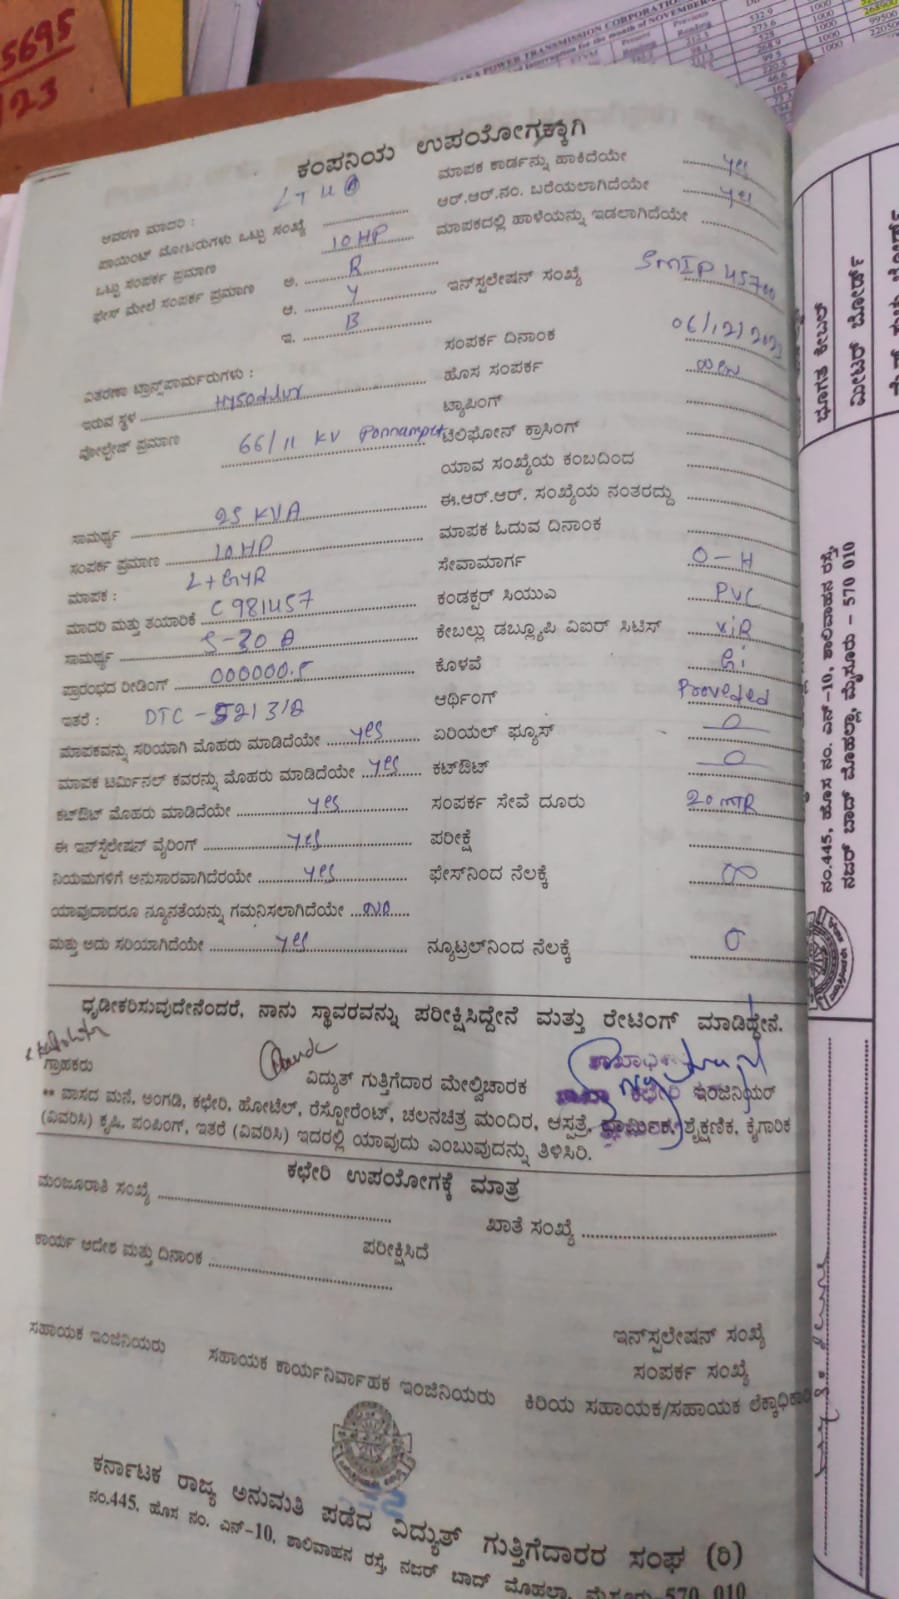 5695
123
KARA POWER TRANSMISSION CORPORATION
interruption for the month of NOVEMBER
Present
Previous
Reading
ಕಂಪನಿಯ ಉಪಯೋಗಕ್ಕಾಗಿ
ಆವರಣ ಮಾದರಿ : LT 4
ಪಾಯಿಂಟ್ ಮೋಟರುಗಳು ಒಟ್ಟು ಸಂಖ್ಯೆ
ಒಟ್ಟು ಸಂಪರ್ಕ ಪ್ರಮಾಣ 10 HP
ಫೇಸ್ ಮೇಲೆ ಸಂಪರ್ಕ ಪ್ರಮಾಣ ಅ. R
ಆ. Y
ಇ. B
ವಿತರಣಾ ಟ್ರಾನ್ಸ್‌ಫಾರ್ಮರುಗಳು :
ಇರುವ ಸ್ಥಳ Hysodulur
ವೋಲ್ಟೇಜ್ ಪ್ರಮಾಣ 66/11 KV Ponnampet
ಸಾಮರ್ಥ್ಯ 25 KVA
ಸಂಪರ್ಕ ಪ್ರಮಾಣ 10 HP
ಮಾಪಕ : L+GYR
ಮಾದರಿ ಮತ್ತು ತಯಾರಿಕೆ C 981457
ಸಾಮರ್ಥ್ಯ 5-30 A
ಪ್ರಾರಂಭದ ರೀಡಿಂಗ್ 000000.5
ಇತರೆ : DTC - 521312
ಮಾಪಕವನ್ನು ಸರಿಯಾಗಿ ಮೊಹರು ಮಾಡಿದೆಯೇ yes
ಮಾಪಕ ಟರ್ಮಿನಲ್ ಕವರನ್ನು ಮೊಹರು ಮಾಡಿದೆಯೇ yes
ಕಟ್‌ಔಟ್ ಮೊಹರು ಮಾಡಿದೆಯೇ yes
ಈ ಇನ್‌ಸ್ಟಲೇಷನ್ ವೈರಿಂಗ್ yes
ನಿಯಮಗಳಿಗೆ ಅನುಸಾರವಾಗಿದೆರಯೇ yes
ಯಾವುದಾದರೂ ನ್ಯೂನತೆಯನ್ನು ಗಮನಿಸಲಾಗಿದೆಯೇ no
ಮತ್ತು ಅದು ಸರಿಯಾಗಿದೆಯೇ yes
ಮಾಪಕ ಕಾರ್ಡನ್ನು ಹಾಕಿದೆಯೇ yes
ಆರ್.ಆರ್.ನಂ. ಬರೆಯಲಾಗಿದೆಯೇ yes
ಮಾಪಕದಲ್ಲಿ ಹಾಳೆಯನ್ನು ಇಡಲಾಗಿದೆಯೇ
ಇನ್‌ಸ್ಟಲೇಷನ್ ಸಂಖ್ಯೆ SMIP 45700
ಸಂಪರ್ಕ ದಿನಾಂಕ 06/12/2023
ಹೊಸ ಸಂಪರ್ಕ new
ಟ್ಯಾಪಿಂಗ್
ಟೆಲಿಫೋನ್ ಕ್ರಾಸಿಂಗ್
ಯಾವ ಸಂಖ್ಯೆಯ ಕಂಬದಿಂದ
ಈ.ಆರ್.ಆರ್. ಸಂಖ್ಯೆಯ ನಂತರದ್ದು
ಮಾಪಕ ಓದುವ ದಿನಾಂಕ
ಸೇವಾಮಾರ್ಗ O-H
ಕಂಡಕ್ಟರ್ ಸಿಯುವಿ PVC
ಕೇಬಲ್ಲು ಡಬ್ಲ್ಯೂಪಿ ವಿಐರ್ ಸಿಟಿಸ್ ViR
ಕೊಳವೆ Gi
ಆರ್ಥಿಂಗ್ Proveded
ಏರಿಯಲ್ ಫ್ಯೂಸ್ 0
ಕಟ್‌ಔಟ್ 0
ಸಂಪರ್ಕ ಸೇವೆ ದೂರು 20 mTR
ಪರೀಕ್ಷೆ
ಫೇಸ್‌ನಿಂದ ನೆಲಕ್ಕೆ ∞
ನ್ಯೂಟ್ರಲ್‌ನಿಂದ ನೆಲಕ್ಕೆ 0
ಧೃಡೀಕರಿಸುವುದೇನೆಂದರೆ, ನಾನು ಸ್ಥಾವರವನ್ನು ಪರೀಕ್ಷಿಸಿದ್ದೇನೆ ಮತ್ತು ರೇಟಿಂಗ್ ಮಾಡಿದ್ದೇನೆ.
ಗ್ರಾಹಕರು ವಿದ್ಯುತ್ ಗುತ್ತಿಗೆದಾರ ಮೇಲ್ವಿಚಾರಕ ಇಂಜಿನಿಯರ್
** ವಾಸದ ಮನೆ, ಅಂಗಡಿ, ಕಛೇರಿ, ಹೋಟೆಲ್, ರೆಸ್ಟೋರೆಂಟ್, ಚಲನಚಿತ್ರ ಮಂದಿರ, ಆಸ್ಪತ್ರೆ, ಧಾರ್ಮಿಕ, ಶೈಕ್ಷಣಿಕ, ಕೈಗಾರಿಕ
(ವಿವರಿಸಿ) ಕೃಷಿ, ಪಂಪಿಂಗ್, ಇತರೆ (ವಿವರಿಸಿ) ಇದರಲ್ಲಿ ಯಾವುದು ಎಂಬುವುದನ್ನು ತಿಳಿಸಿರಿ.
ಕಛೇರಿ ಉಪಯೋಗಕ್ಕೆ ಮಾತ್ರ
ಮಂಜೂರಾತಿ ಸಂಖ್ಯೆ
ಖಾತೆ ಸಂಖ್ಯೆ
ಕಾರ್ಯ ಆದೇಶ ಮತ್ತು ದಿನಾಂಕ
ಪರೀಕ್ಷಿಸಿದೆ
ಇನ್‌ಸ್ಟಲೇಷನ್ ಸಂಖ್ಯೆ
ಸಂಪರ್ಕ ಸಂಖ್ಯೆ
ಸಹಾಯಕ ಇಂಜಿನಿಯರು ಸಹಾಯಕ ಕಾರ್ಯನಿರ್ವಾಹಕ ಇಂಜಿನಿಯರು ಕಿರಿಯ ಸಹಾಯಕ/ಸಹಾಯಕ ಲೆಕ್ಕಾಧಿಕಾರಿ
ಕರ್ನಾಟಕ ರಾಜ್ಯ ಅನುಮತಿ ಪಡೆದ ವಿದ್ಯುತ್ ಗುತ್ತಿಗೆದಾರರ ಸಂಘ (ರಿ)
ನಂ.445, ಹೊಸ ನಂ. ಎನ್-10, ಶಾಲಿವಾಹನ ರಸ್ತೆ, ನಜರ್ ಬಾದ್ ಮೊಹಲ್ಲಾ, ಮೈಸೂರು-570 010
ಭೂಗತ ಕೇಬಲ್
ಮೀಟರ್ ಬೋರ್ಡ್
ನಂ.445, ಹೊಸ ನಂ. ಎನ್-10, ಶಾಲಿವಾಹನ ರಸ್ತೆ,
ನಜರ್ ಬಾದ್ ಮೊಹಲ್ಲಾ, ಮೈಸೂರು - 570 010